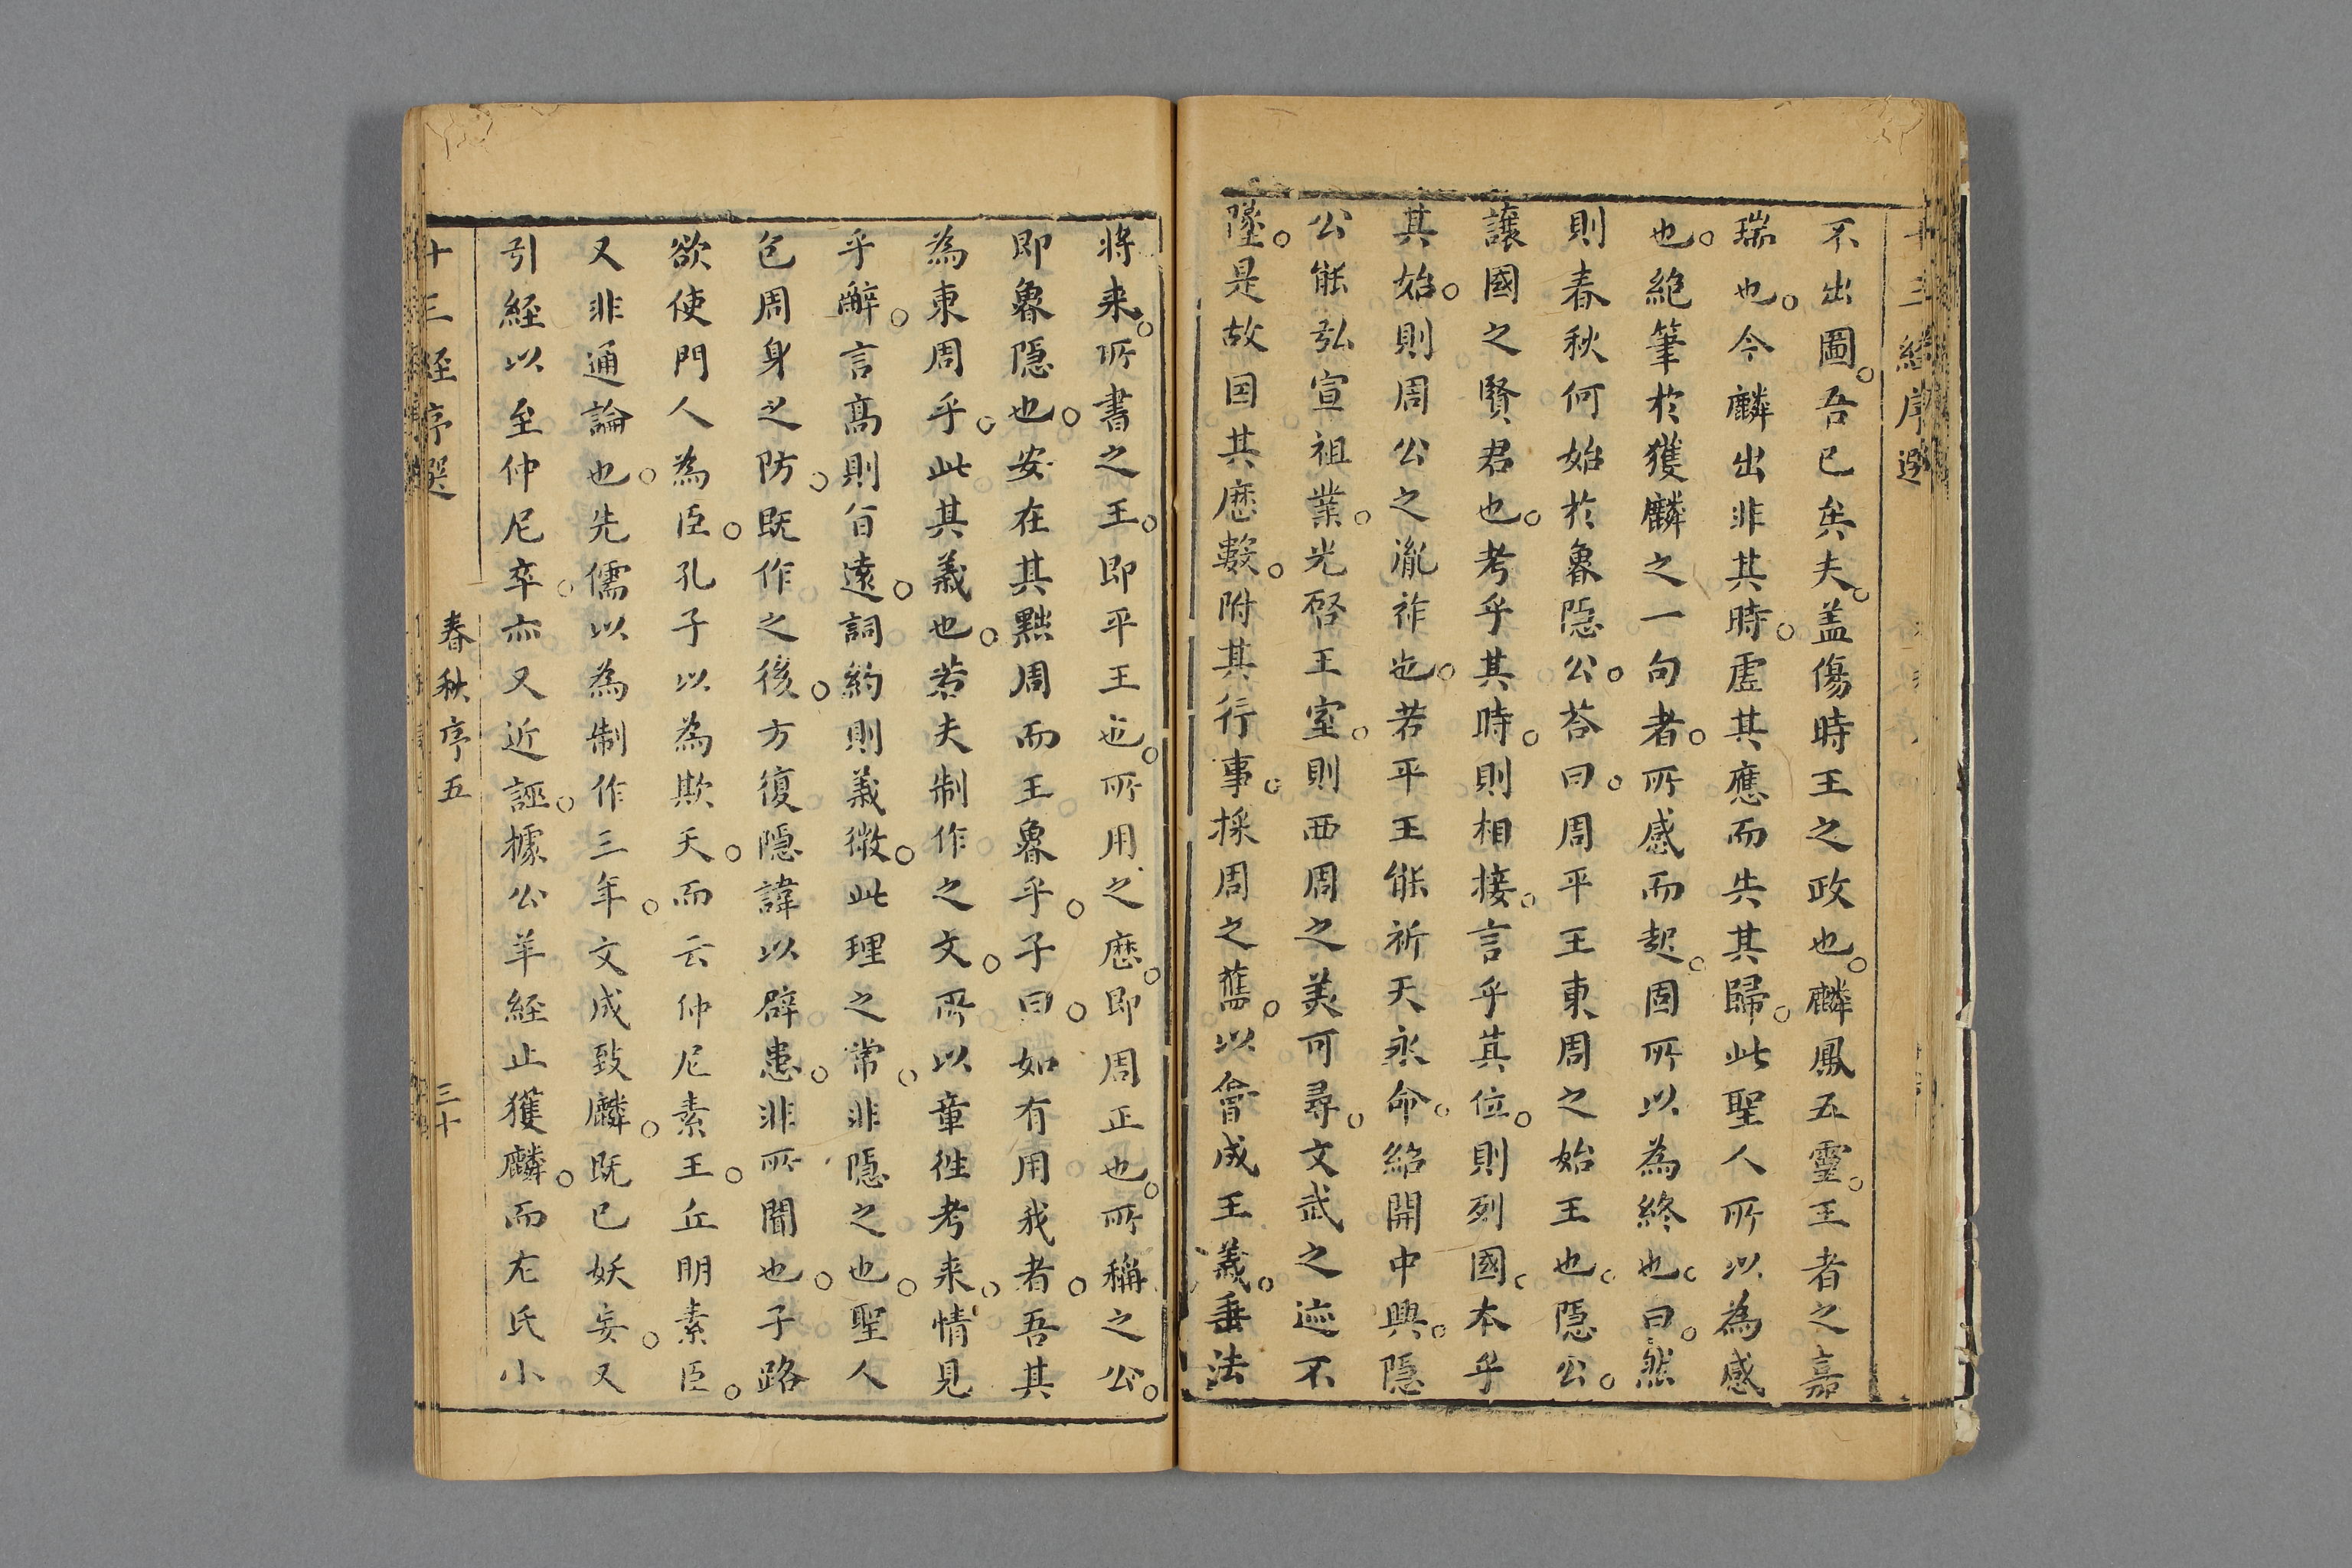 十三經序選
不出圖。吾已矣夫。盖傷時王之政也。麟鳳五靈。王者之嘉
瑞也。今麟出非其時。虛其應而失其歸。此聖人所以為感
也。絶筆於獲麟之一句者。所感而起。固所以為終也。曰。然
則春秋何始於魯隱公。荅曰。周平王東周之始王也。隱公。
讓國之賢君也。考乎其時。則相接。言乎其位。則列國。本乎
其始。則周公之胤祚也。若平王能祈天永命。紹開中興。隱
公能弘宣祖業。光啓王室。則西周之美可尋。文武之迹不
墜。是故因其歷數。附其行事。採周之舊。以會成王義。垂法
將来。所書之王。即平王也。所用之歷。即周正也。所稱之公。
即魯隱也。安在其黜周而王魯乎。子曰。如有用我者。吾其
為東周乎。此其義也。若夫制作之文。所以章徃考来。情見
乎辭。言髙則旨遠。詞約則義微。此理之常。非隱之也。聖人
包周身之防。既作之後。方復隱諱以辟患。非所聞也。子路
欲使門人為臣。孔子以為欺天。而云仲尼素王。丘明素臣。
又非通論也。先儒以為制作三年。文成致麟。既已妖妄。又
引經以至仲尼卒。亦又近誣。據公羊經止獲麟。而左氏小
十三經序選
春秋序五
三十